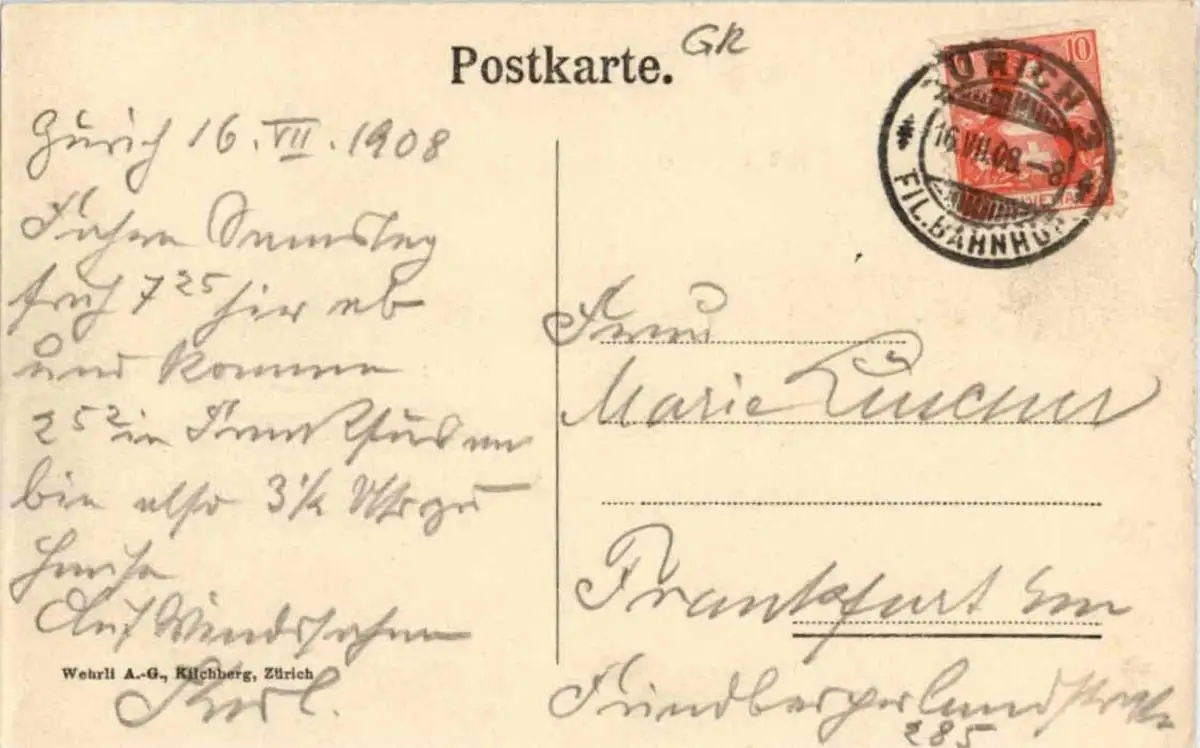 Postkarte.
GR
10
ZÜRICH 3
16.VII.08.–8
FIL.BAHNHOF
HELVETIA
Zürich 16. VII. 1908
Fahre Samstag
früh 7 25 hier ab
und komme
2 52 in Frankfurt an
bin also 3 1/2 Uhr zu
Hause
Auf Wiedersehen
Karl.
Wehrli A.-G., Kilchberg, Zürich
Frau
Marie
Frankfurt a/m
Friedbergerlandstraße
285